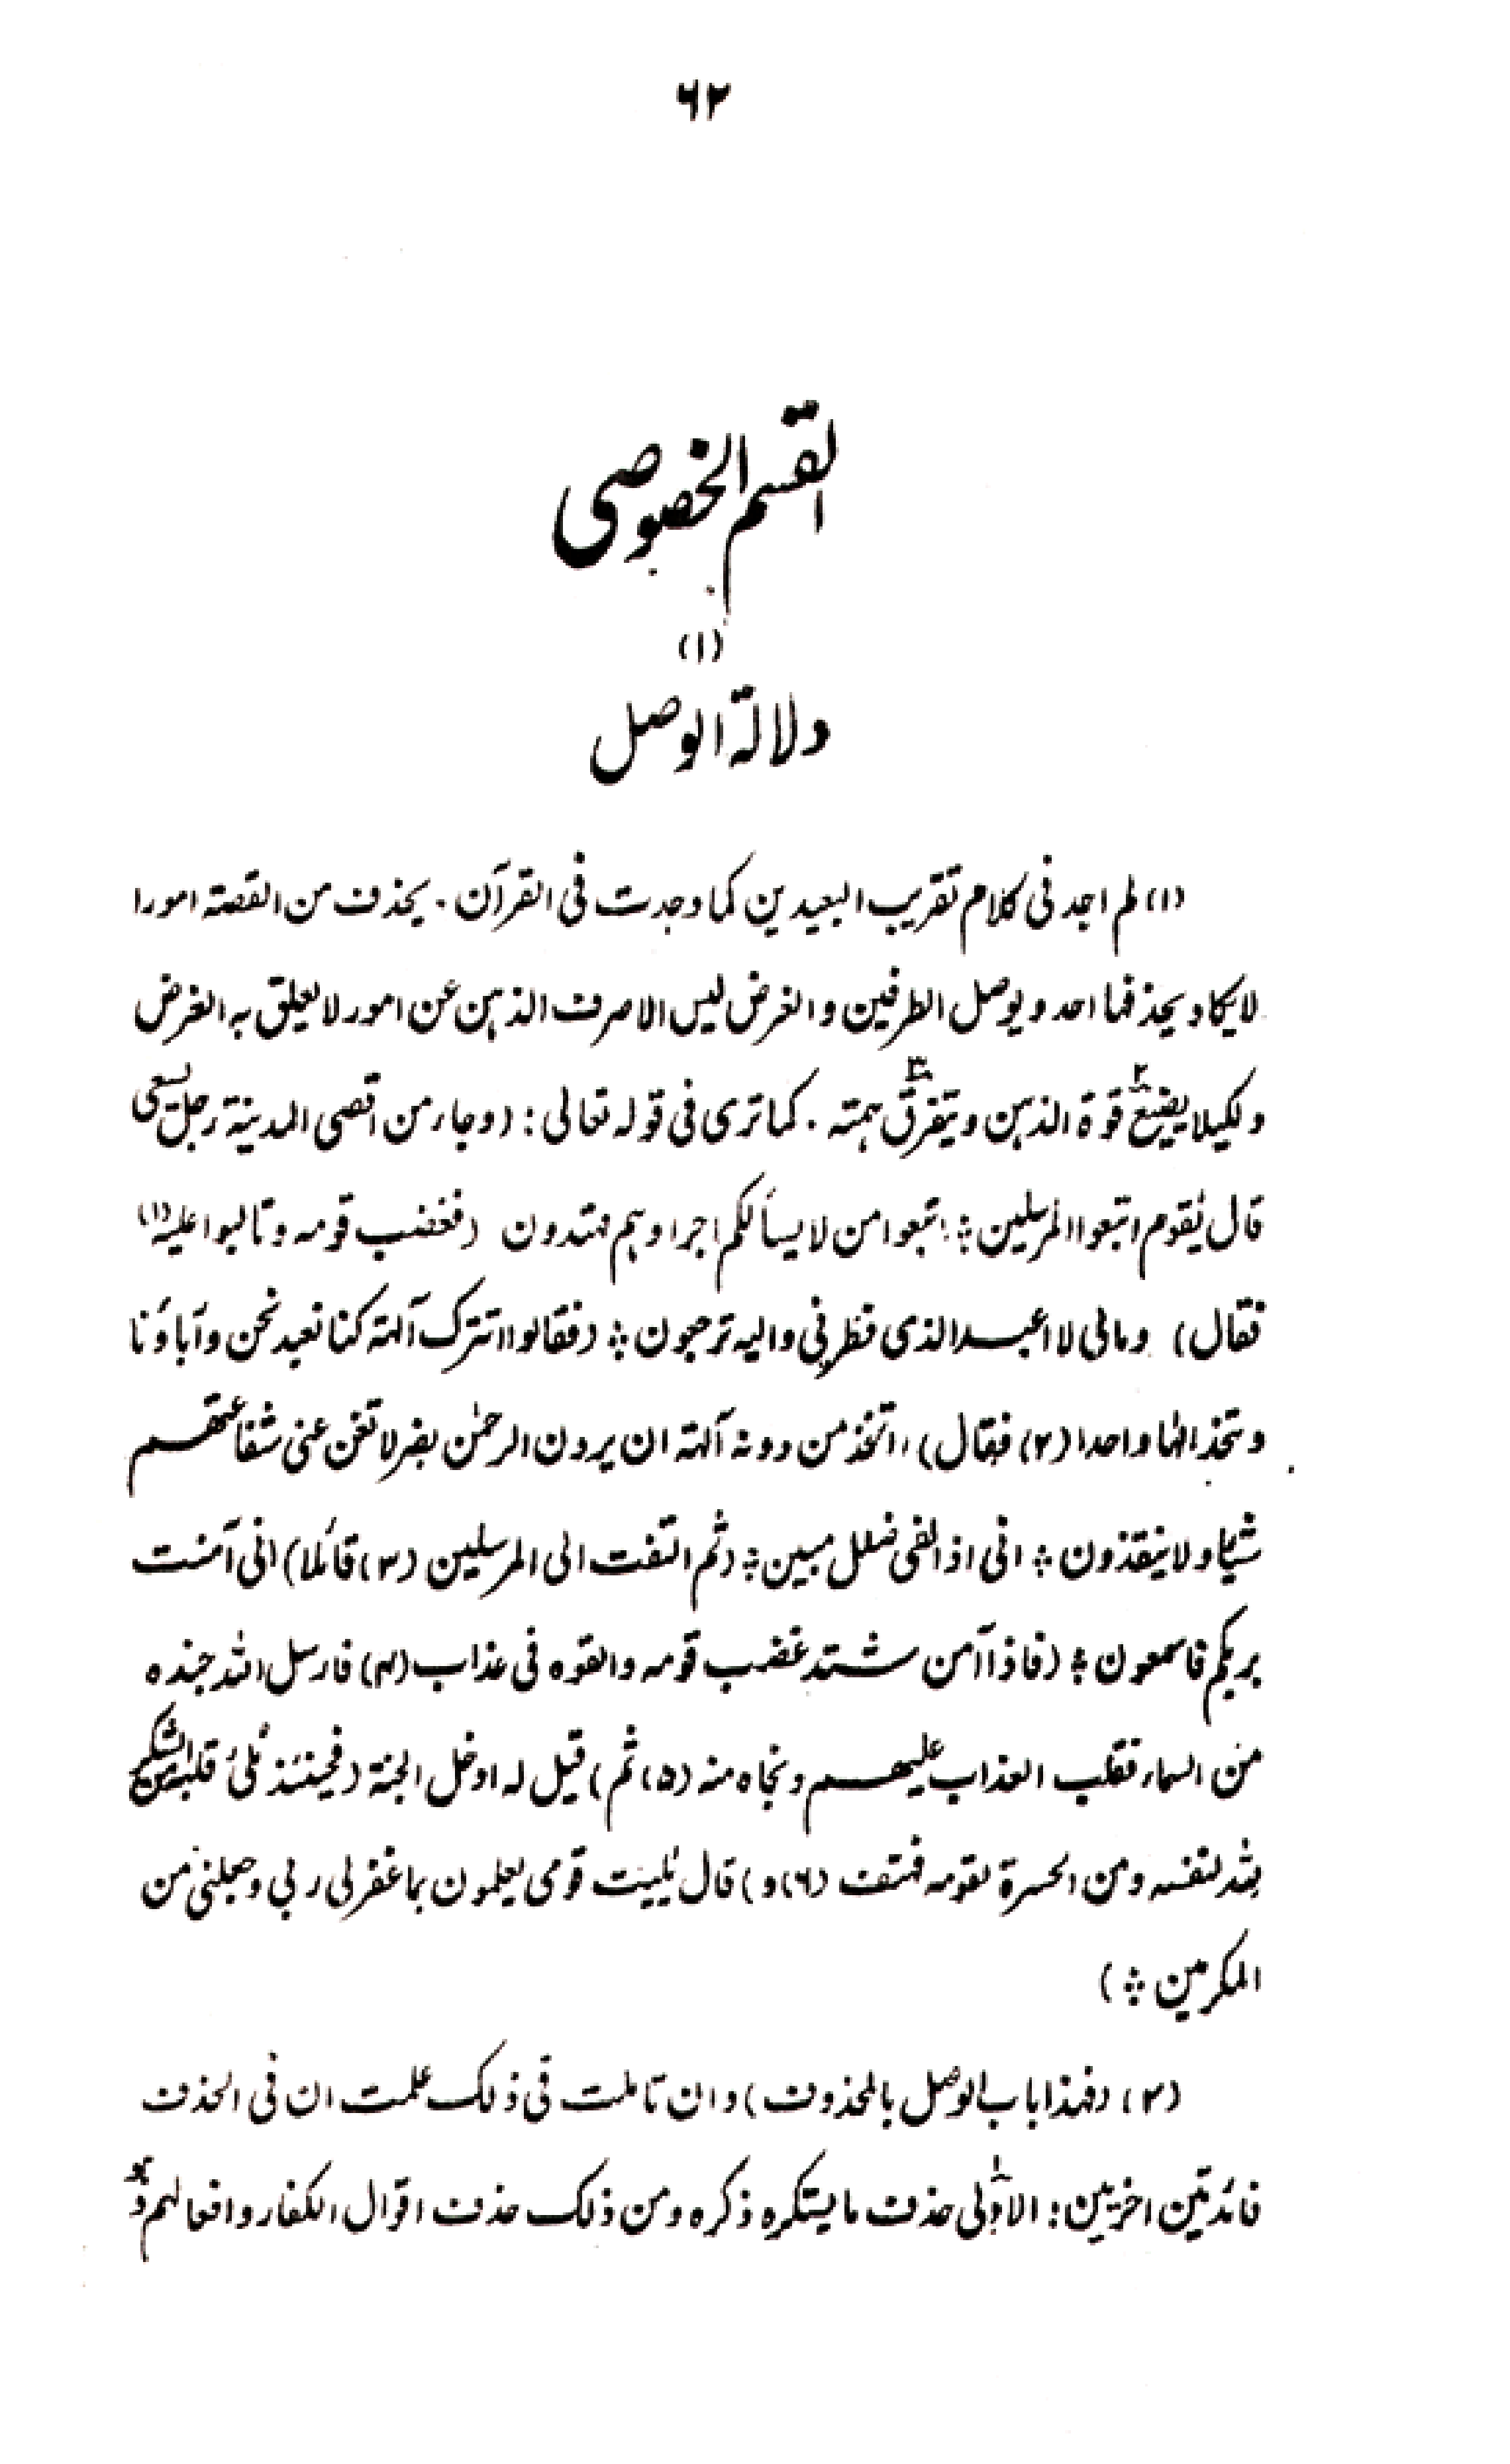 ٦٢
القسم الخصوصى
(١)
دلالة الوصل
(١) لم اجد فى كلام تقريب البعيدين كما وجدت فى القرآن. يحذف من القصة امورا
لا يكاد يحذفها احد و يوصل الطرفين و الغرض ليس الا صرف الذهن عن امور لا يعلق به الغرض
و لكيلا يضيع قوة الذهن و يتفرق همته. كما ترى فى قوله تعالى: (و جاء من اقصى المدينة رجل يسعى
قال يٰقوم اتبعوا المرسلين ؞ اتبعوا من لا يسألكم اجرا و هم مهتدون (فغضب قومه و تألبوا عليه (١)
فقال) و مالى لا اعبد الذى فطرنى و اليه ترجعون ؞ (فقالوا اتترك آلهة كنا نعبد نحن و آباؤنا
و تتخذ الٰها واحدا (٢) فقال) ءاتخذ من دونه آلهة ان يردن الرحمٰن بضر لا تغن عنى شفاعتهم
شيئا و لا ينقذون ؞ انى اذا لفى ضلل مبين ؞ (ثم التفت الى المرسلين (٣) قائلا) انى آمنت
بربكم فاسمعون ؞ (فاذا آمن شتد غضب قومه و القوه فى عذاب (٤) فارسل الله جنده
من السماء فقلب العذاب عليهم و نجاه منه (٥) ثم) قيل له ادخل الجنة (فحينئذ مُلئ قلبه من الشكر
لله لنفسه و من الحسرة لقومه فهتف (٦) و) قال يٰليت قومى يعلمون بما غفر لى ربى و جعلنى من
المكرمين ؞)
(٢) (فهذا باب الوصل بالمحذوف) و ان تأملت فى ذلك علمت ان فى الحذف
فائدتين اخريين: الاولى حذف ما يستكره ذكره و من ذلك حذف اقوال الكفار و افعالهم